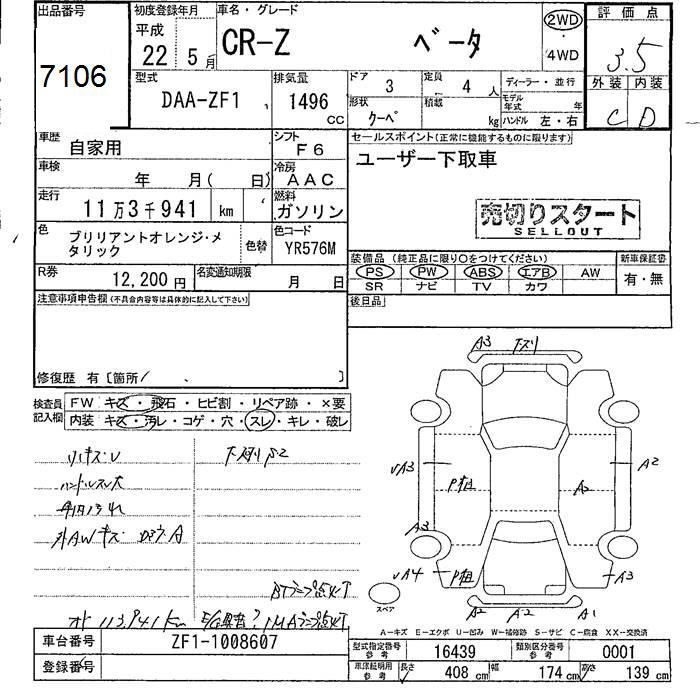 出品番号
7106
初度登録年月
平成
22 5月
車名・グレード
CR-Z ベータ
2WD
・
4WD
評価点
3.5
外装 内装
C D
型式
DAA-ZF1
排気量
1496
CC
ドア
3
定員
4 人
形状
クーペ
積載
kg
ディーラー・並行
モデル年式 年
ハンドル 左・右
車歴
自家用
シフト
F6
車検
年 月( 日)
冷房
AAC
走行
11万3千941 km
燃料
ガソリン
色
ブリリアントオレンジ・メタリック
色替
色コード
YR576M
R券
12,200円
名変通知期限
月 日
セールスポイント(正常に機能するものに限ります)
ユーザー下取車
売切りスタート
SELLOUT
装備品(純正品に限り○をつけてください)
PS PW ABS エアB AW
SR ナビ TV カワ
新車保証書
有・無
後日品
注意事項申告欄(不具合内容等は具体的に記入して下さい)
修復歴 有〔箇所/ 〕
検査員記入欄
FW キズ・飛石・ヒビ割・リペア跡・×要
内装 キズ・汚レ・コゲ・穴・スレ・キレ・破レ
ハンドルスレ大
外AWキズ
113,941km
A3
A2
A3
A3
A2
A2
A1
スペア
A-キズ E-エクボ U-凹み W-補修跡 S-サビ C-腐食 XX-交換済
車台番号
ZF1-1008607
登録番号
型式指定番号 参考
16439
類別区分番号 参考
0001
車庫証明用 参考
長さ 408 cm
幅 174 cm
高さ 139 cm